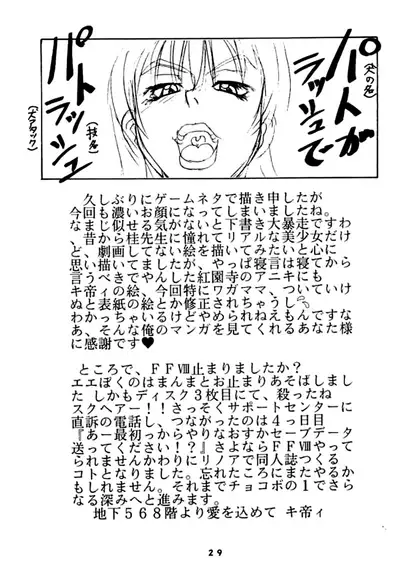 パトが
ラッシュで
(犬の名)
パト
ラッシュ
(技名)
(犬アタック)
久しぶりにゲームネタで描き申したが
今回も濃いお顔になってしまいましたね。
なまじ似せる気がないと下書き大暴走ですわ
、昔から桂先生に憧れてリアルな美少女だけ
ど、劇画してない絵を描いてみたいと心に
思い描いてましたが、やっぱ寝言は寝てから
言うべきでやんした紅園寺のアニキにも
キ帝ィの絵、今回特にワガママ、ついていけ
ぬと表紙の絵とか修正されちゃうし
わかっちゃいるけどやめられねえもんですな
あ、そんな俺のマンガを見てくれるあなた様
に感謝です♥
ところで、FFⅧ止まりましたか?
エエぼくのはまんまとお止まりあそばしまし
た しかもディスク3枚目にて、殺ったね
スクヘアー!!さっそくサポートセンターに
直訴の電話し、つながったのは4っ日目
『あー最初っからやりなおすかセーブデータ
送ってください!?』さよならFFⅧやって
られませんかわりにリノアで同人誌つくる
コトとなりました。忘れたころにまたやるか
もしれません。それまでチョコボの1でさら
なる深みへと進みます。
地下568階より愛を込めて キ帝ィ
29